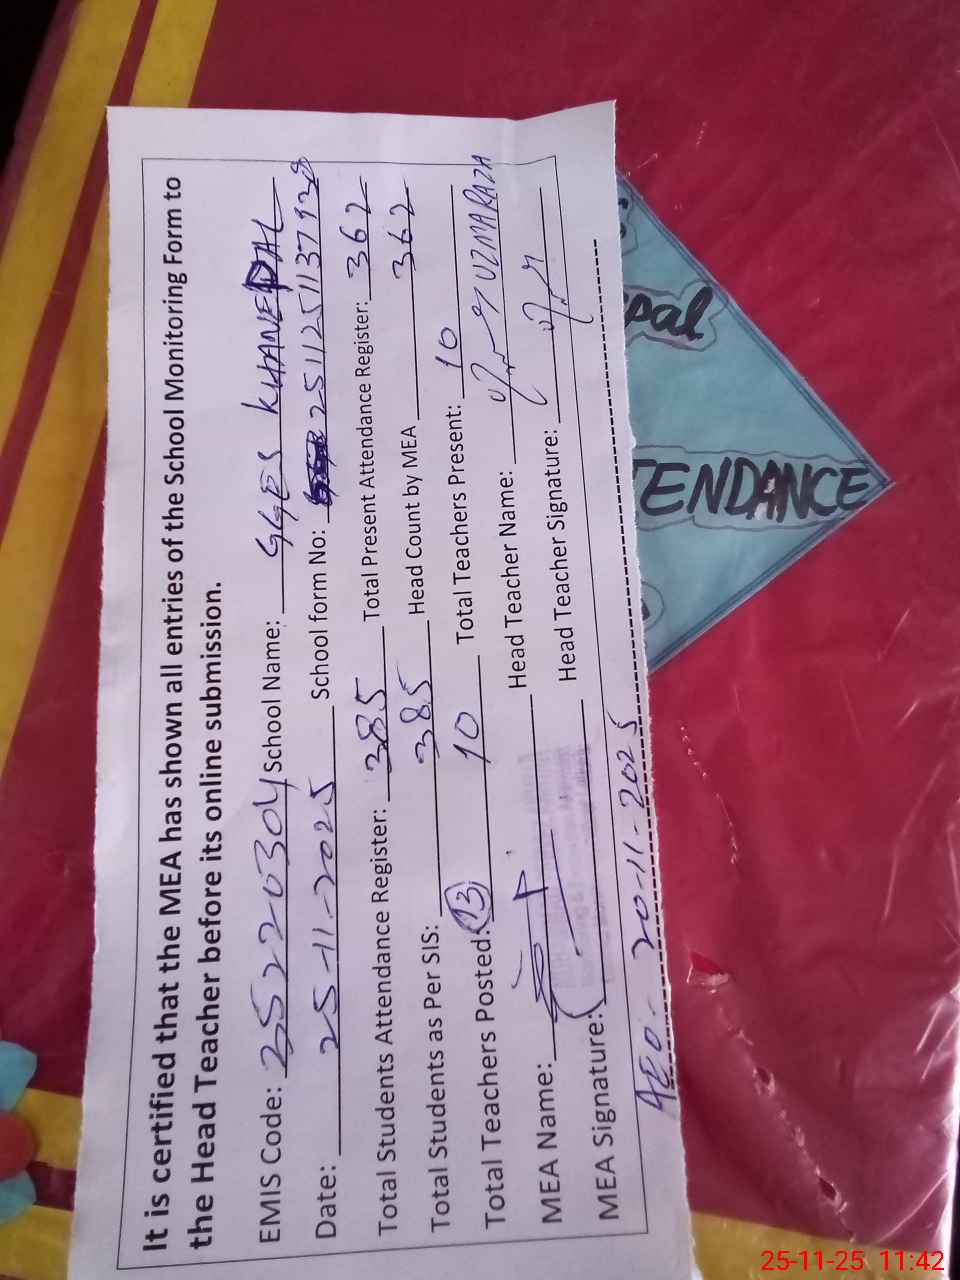 It is certified that the MEA has shown all entries of the School Monitoring Form to
the Head Teacher before its online submission.
EMIS Code: 35220304 School Name: GGES KHANEPAL
Date: 25-11-2025 School form No: 25112511379
Total Students Attendance Register: 385 Total Present Attendance Register: 362
Total Students as Per SIS: 385 Head Count by MEA 362
Total Teachers Posted: 13 10 Total Teachers Present: 10
MEA Name: Head Teacher Name: UZMA RAZA
MEA Signature: Head Teacher Signature:
AEO. 20-11-2025
pal
TENDANCE
25-11-25 11:42